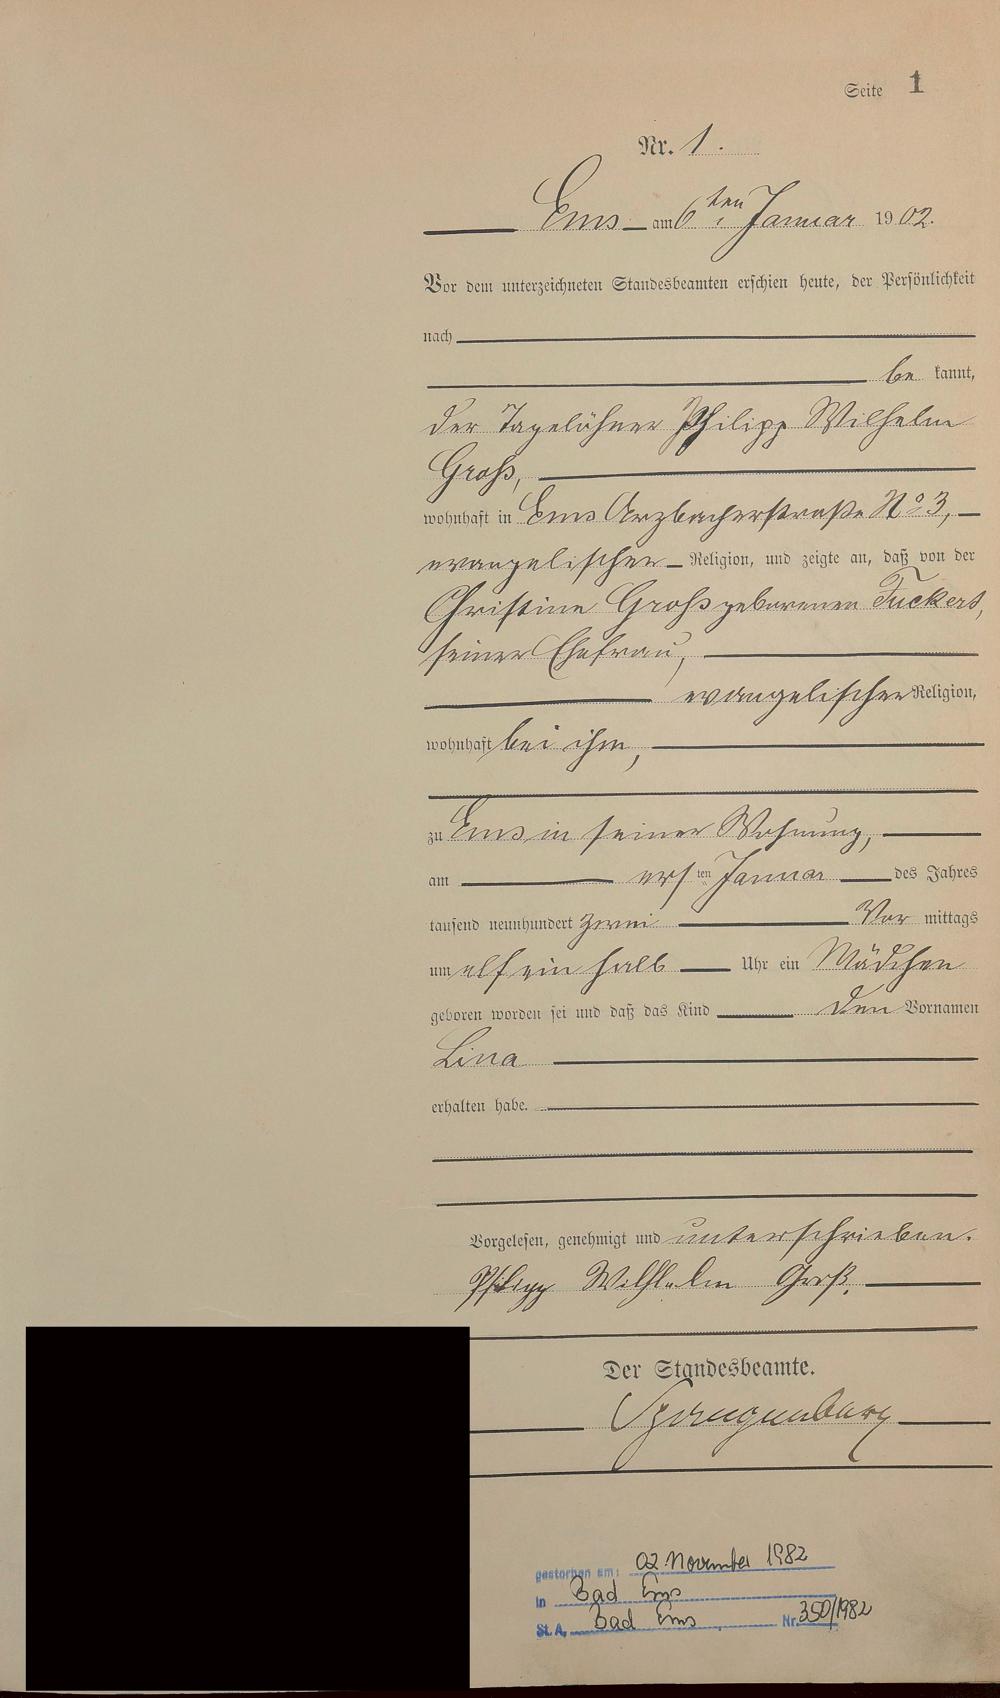 Seite 1
Nr. 1.
Ems am 6ten Januar 1902.
Vor dem unterzeichneten Standesbeamten erschien heute, der Persönlichkeit
nach
be kannt,
der Tagelöhner Philipp Wilhelm
Groß,
wohnhaft in Ems Arzbacherstraße No 3,
evangelischer Religion, und zeigte an, daß von der
Christine Groß geborenen Tuckert,
seiner Ehefrau,
evangelischer Religion,
wohnhaft bei ihm,
zu Ems in seiner Wohnung,
am ersten Januar des Jahres
tausend neunhundert zwei Vor mittags
um elf ein halb Uhr ein Mädchen
geboren worden sei und daß das Kind den Vornamen
Lina
erhalten habe.
Vorgelesen, genehmigt und unterschrieben.
Philipp Wilhelm Groß.
Der Standesbeamte.
gestorben am: 02. November 1982
in Bad Ems
St. A. Bad Ems Nr. 350/1982